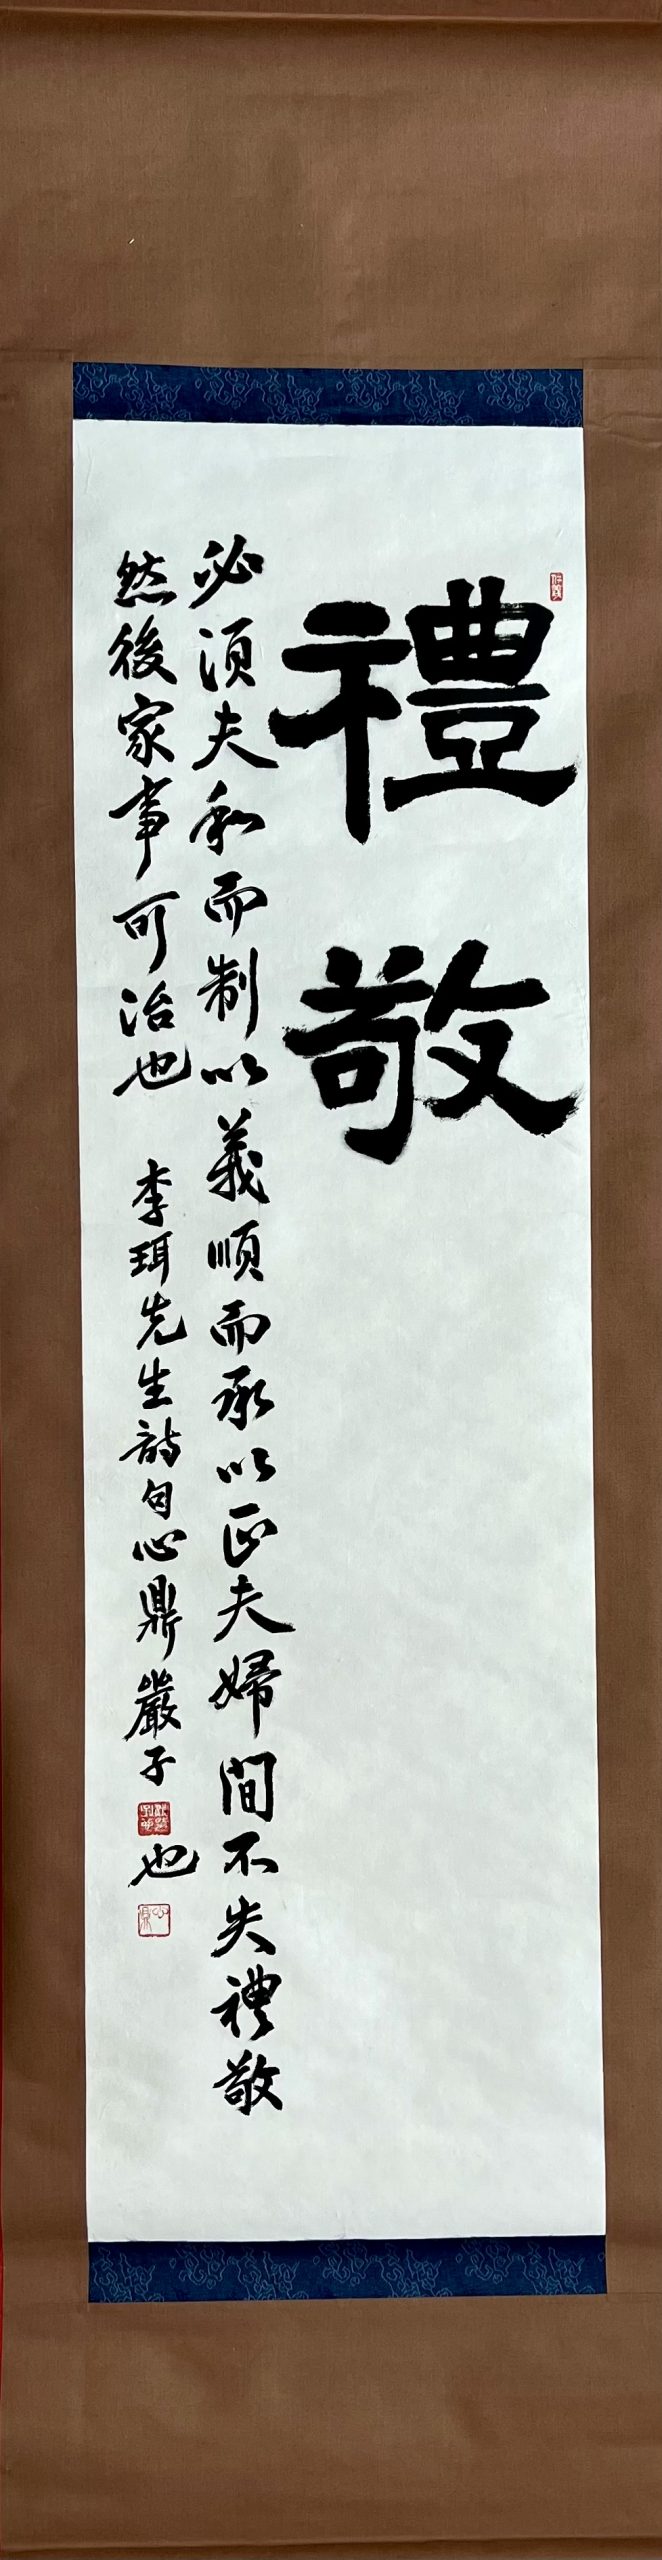 禮敬
必須夫和而制以義順而承以正夫婦間不失禮敬
然後家事可治也 李珥先生詩句心鼎嚴子也